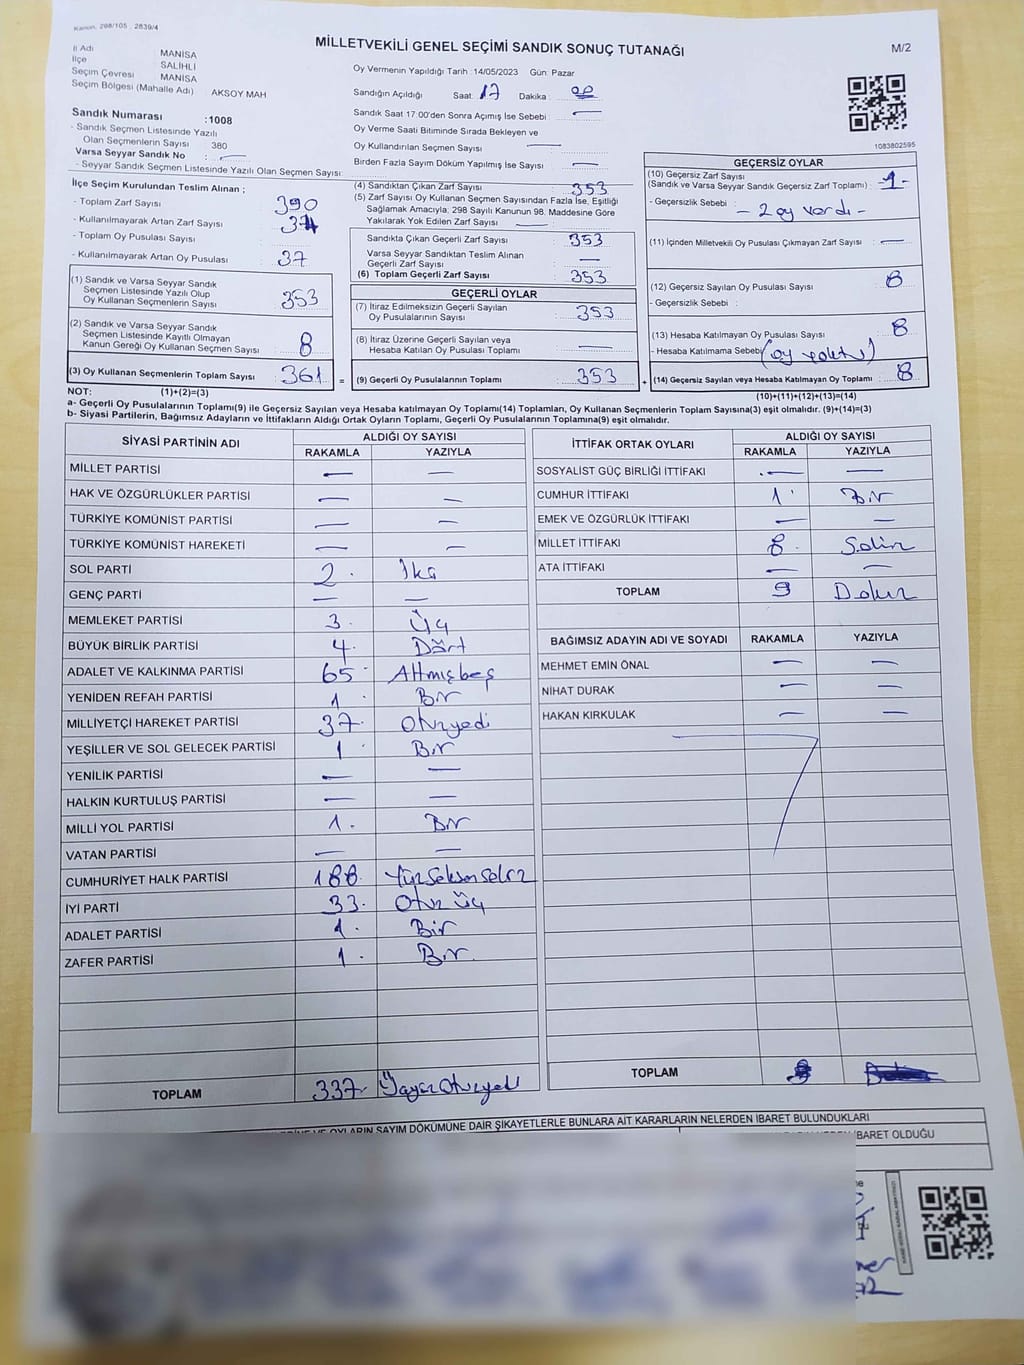 Kanun. 298/105 2839/4
MİLLETVEKİLİ GENEL SEÇİMİ SANDIK SONUÇ TUTANAĞI
M/2
İl Adı MANİSA
İlçe SALİHLİ
Seçim Çevresi MANİSA
Seçim Bölgesi (Mahalle Adı) AKSOY MAH
Sandık Numarası :1008
- Sandık Seçmen Listesinde Yazılı
Olan Seçmenlerin Sayısı : 380
Varsa Seyyar Sandık No : —
- Seyyar Sandık Seçmen Listesinde Yazılı Olan Seçmen Sayısı:
Oy Vermenin Yapıldığı Tarih :14/05/2023 Gün: Pazar
Sandığın Açıldığı Saat: 17 Dakika : 00
Sandık Saat 17:00'den Sonra Açımış İse Sebebi : —
Oy Verme Saati Bitiminde Sırada Bekleyen ve
Oy Kullandırılan Seçmen Sayısı : —
Birden Fazla Sayım Döküm Yapılmış İse Sayısı : —
1083802595
İlçe Seçim Kurulundan Teslim Alınan ;
- Toplam Zarf Sayısı : 390
- Kullanılmayarak Artan Zarf Sayısı : 37
- Toplam Oy Pusulası Sayısı :
- Kullanılmayarak Artan Oy Pusulası : 37
(1) Sandık ve Varsa Seyyar Sandık
Seçmen Listesinde Yazılı Olup
Oy Kullanan Seçmenlerin Sayısı : 353
(2) Sandık ve Varsa Seyyar Sandık
Seçmen Listesinde Kayıtlı Olmayan
Kanun Gereği Oy Kullanan Seçmen Sayısı : 8
(3) Oy Kullanan Seçmenlerin Toplam Sayısı : 361 =
(4) Sandıktan Çıkan Zarf Sayısı : 353
(5) Zarf Sayısı Oy Kullanan Seçmen Sayısından Fazla İse, Eşitliği
Sağlamak Amacıyla, 298 Sayılı Kanunun 98. Maddesine Göre
Yakılarak Yok Edilen Zarf Sayısı : —
Sandıkta Çıkan Geçerli Zarf Sayısı : 353
Varsa Seyyar Sandıktan Teslim Alınan
Geçerli Zarf Sayısı : —
(6) Toplam Geçerli Zarf Sayısı : 353
GEÇERLİ OYLAR
(7) İtiraz Edilmeksizin Geçerli Sayılan
Oy Pusulalarının Sayısı : 353
(8) İtiraz Üzerine Geçerli Sayılan veya
Hesaba Katılan Oy Pusulası Toplamı : —
(9) Geçerli Oy Pusulalarının Toplamı : 353 +
GEÇERSİZ OYLAR
(10) Geçersiz Zarf Sayısı
(Sandık ve Varsa Seyyar Sandık Geçersiz Zarf Toplamı) : -1-
- Geçersizlik Sebebi : - 2 oy vardı -
(11) İçinden Milletvekili Oy Pusulası Çıkmayan Zarf Sayısı : —
(12) Geçersiz Sayılan Oy Pusulası Sayısı : 8
- Geçersizlik Sebebi :
(13) Hesaba Katılmayan Oy Pusulası Sayısı : 8
- Hesaba Katılmama Sebebi : (oy yoktu)
(14) Geçersiz Sayılan veya Hesaba Katılmayan Oy Toplamı : 8
NOT: (1)+(2)=(3)
(10)+(11)+(12)+(13)=(14)
a- Geçerli Oy Pusulalarının Toplamı(9) ile Geçersiz Sayılan veya Hesaba katılmayan Oy Toplamı(14) Toplamları, Oy Kullanan Seçmenlerin Toplam Sayısına(3) eşit olmalıdır. (9)+(14)=(3)
b- Siyasi Partilerin, Bağımsız Adayların ve İttifakların Aldığı Ortak Oyların Toplamı, Geçerli Oy Pusulalarının Toplamına(9) eşit olmalıdır.
SİYASİ PARTİNİN ADI ALDIĞI OY SAYISI
RAKAMLA YAZIYLA
MİLLET PARTİSİ — —
HAK VE ÖZGÜRLÜKLER PARTİSİ — —
TÜRKİYE KOMÜNİST PARTİSİ — —
TÜRKİYE KOMÜNİST HAREKETİ — —
SOL PARTİ 2. İki
GENÇ PARTİ — —
MEMLEKET PARTİSİ 3. Üç
BÜYÜK BİRLİK PARTİSİ 4. Dört
ADALET VE KALKINMA PARTİSİ 65 Altmışbeş
YENİDEN REFAH PARTİSİ 1 Bir
MİLLİYETÇİ HAREKET PARTİSİ 37. Otuzyedi
YEŞİLLER VE SOL GELECEK PARTİSİ 1 Bir
YENİLİK PARTİSİ — —
HALKIN KURTULUŞ PARTİSİ — —
MİLLİ YOL PARTİSİ 1. Bir
VATAN PARTİSİ — —
CUMHURİYET HALK PARTİSİ 188. Yüzseksensekiz
İYİ PARTİ 33. Otuz Üç
ADALET PARTİSİ 1. Bir
ZAFER PARTİSİ 1. Bir.
TOPLAM 337. Üçyüzotuzyedi
İTTİFAK ORTAK OYLARI ALDIĞI OY SAYISI
RAKAMLA YAZIYLA
SOSYALİST GÜÇ BİRLİĞİ İTTİFAKI — —
CUMHUR İTTİFAKI 1 Bir
EMEK VE ÖZGÜRLÜK İTTİFAKI — —
MİLLET İTTİFAKI 8. Sekiz
ATA İTTİFAKI — —
TOPLAM 9 Dokuz
BAĞIMSIZ ADAYIN ADI VE SOYADI RAKAMLA YAZIYLA
MEHMET EMİN ÖNAL — —
NİHAT DURAK — —
HAKAN KIRKULAK — —
TOPLAM
VE OYLARIN SAYIM DÖKÜMÜNE DAİR ŞİKAYETLERLE BUNLARA AİT KARARLARIN NELERDEN İBARET BULUNDUKLARI
İBARET OLDUĞU